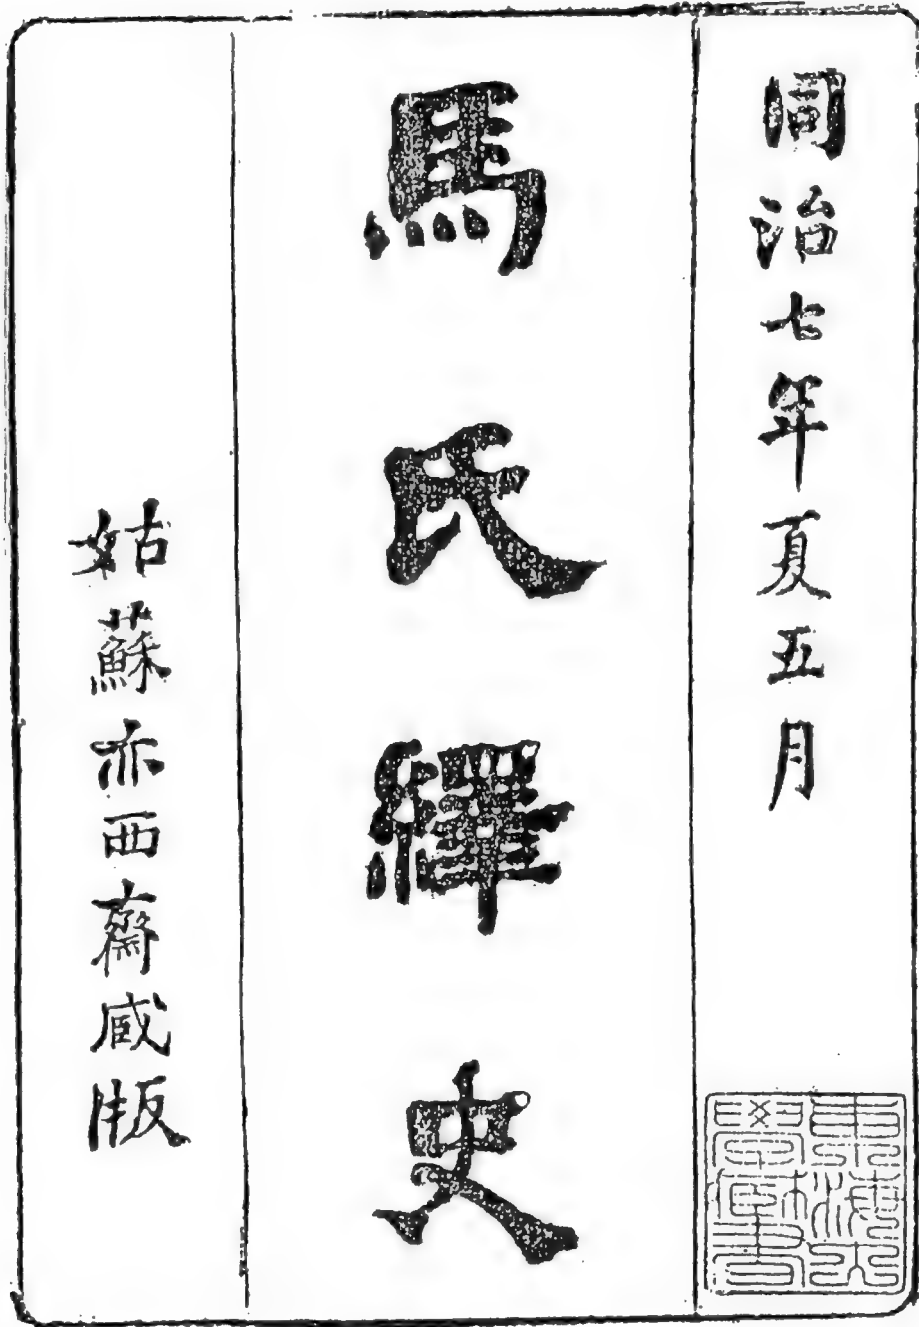 同治七年夏五月
馬氏繹史
姑蘇亦西齋臧版